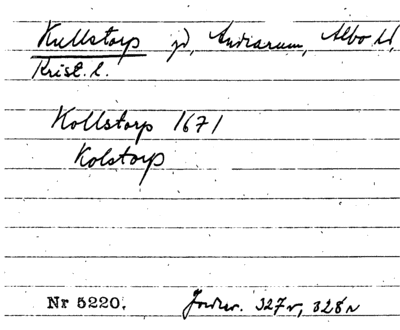 Kullstorp jd, Andrarum, Albo hd,
Krist. l.
Kollstorp 1671
Kolstorp
Nr 5220. Jordrev. 327v, 328r